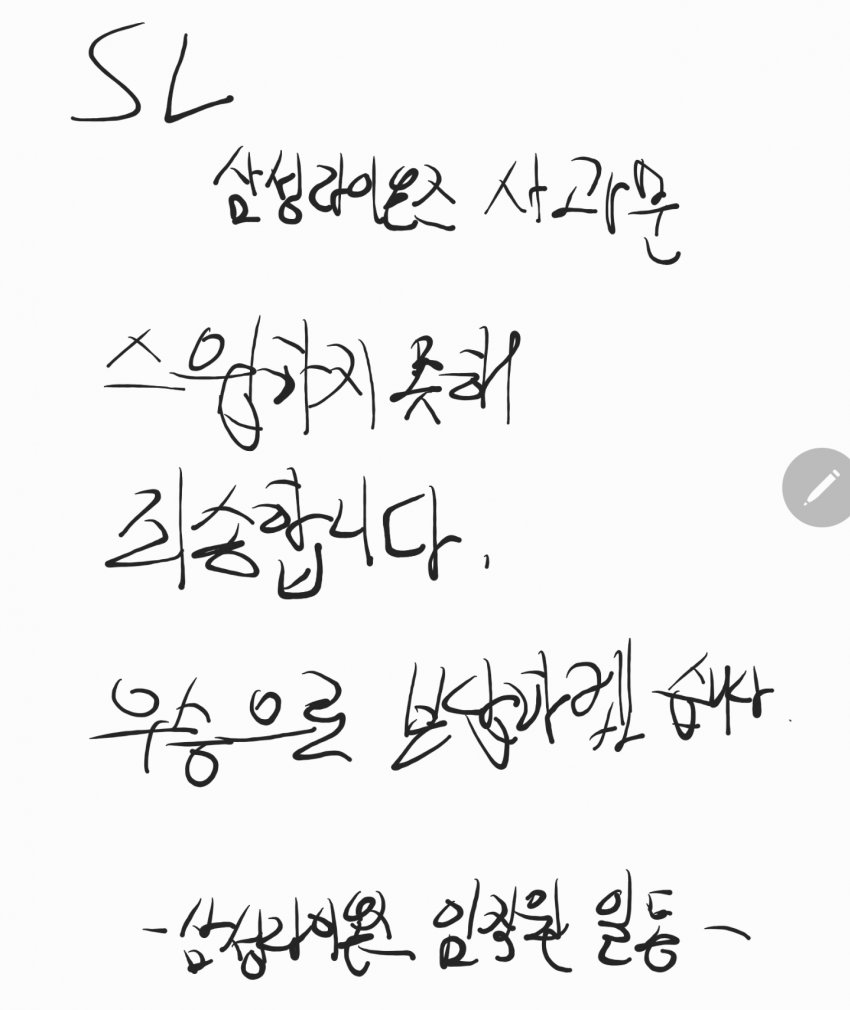 SL
삼성라이온즈 사과문
스윕하지 못해
죄송합니다.
우승으로 보답하겠습니다.
-삼성라이온즈 임직원 일동-